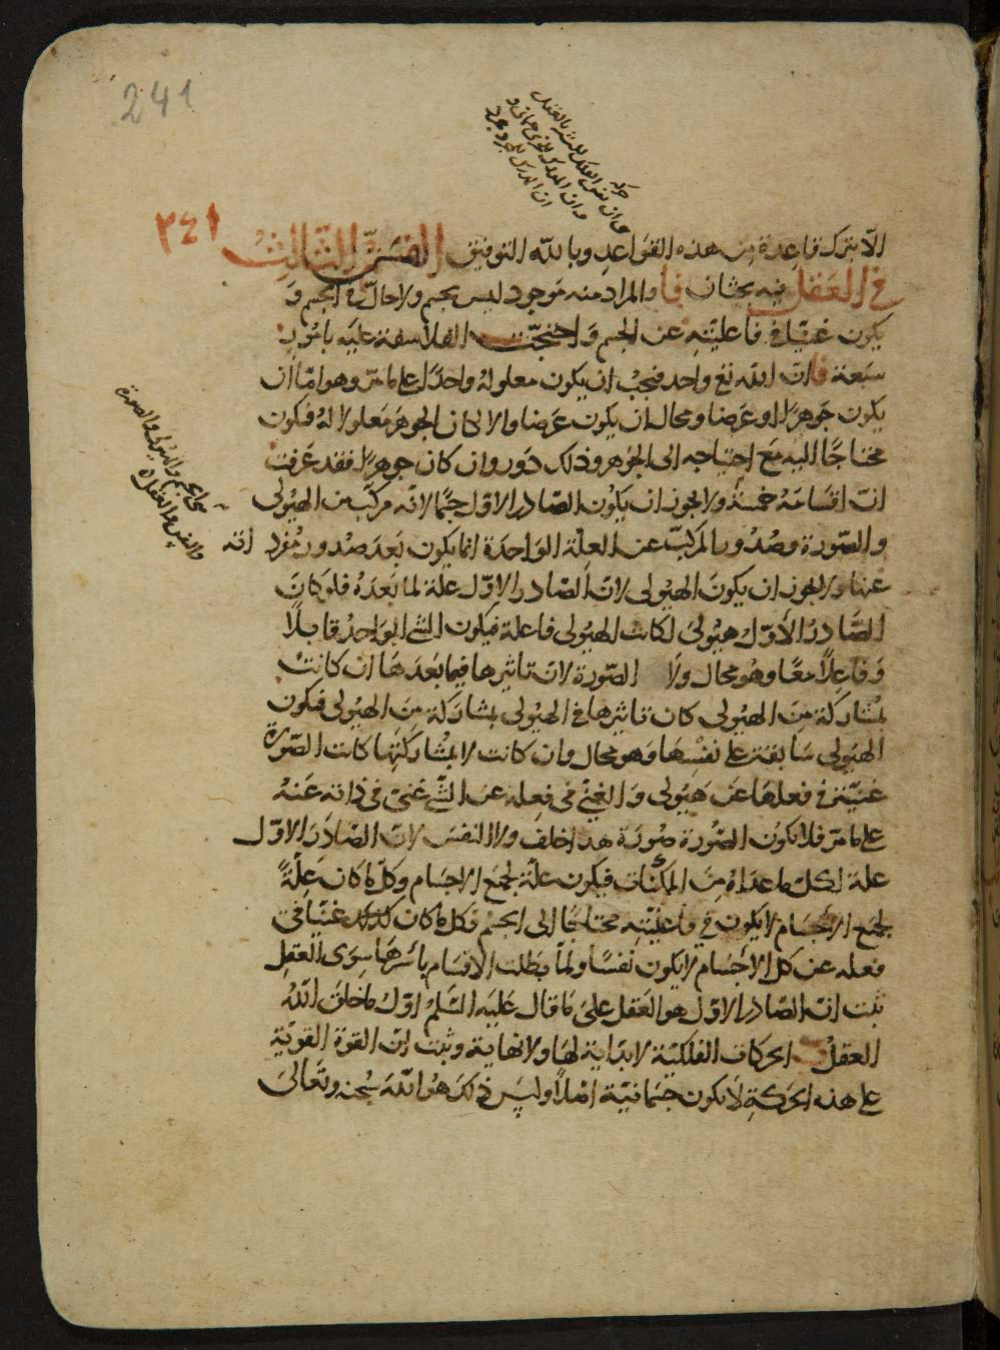 241
٢٤١
الا بترك قاعدة من هذه القواعد وبالله التوفيق الفن الثالث
في العقل فيه بحثان فا والمراد منه موجود ليس بجسم ولا حال في الجسم و
يكون غنيا في فاعليته عن الجسم واحتجت الفلاسفة عليه بامور
سبعة فا ان الله تع واحد فيجب ان يكون معلوله واحدا على ما مر وهو اما ان
يكون جوهرا او عرضا ومحال ان يكون عرضا والا لكان الجوهر معلولا له فيكون
محتاجا اليه مع احتياجه الى الجوهر وذلك دور وان كان جوهرا فقد عرفت
ان اقسامه خمسة ولا يجوز ان يكون الصادر الاول جسما لانه مركب من الهيولى
والصورة وصدور المركب عن العلة الواحدة انما يكون بعد صدور مفرد انه
عنها ولا يجوز ان يكون الهيولى لان الصادر الاول علة لما بعده فلو كان
الصادر الاول هيولى لكانت الهيولى فاعلة فيكون الشي الواحد قابلا
وفاعلا معا وهو محال ولا الصورة لان تاثيرها فيما بعدها ان كانت
بمشاركة من الهيولى كان تاثيرها في الهيولى بمشاركة من الهيولى فيكون
الهيولى سابقة على نفسها وهو محال وان كانت لا بمشاركتها كانت الصورة
غنية في فعلها عن هيولى والغني في فعله عن الشي غنى في ذاته عنه
على ما مر فلا تكون الصورة صورة هذا خلف ولا النفس لان الصادر الاول
علة لكل ما عداه من الممكنات فيكون علة لجمع الاجسام وكل ما كان علة
لجمع الاجسام لا يكون في فاعليته محتاجا الى الجسم فكل ما كان كذلك غنيا في
فعله عن كل الاجسام لا يكون نفسا ولما بطلت الاقسام باسرها سوى العقل
ثبت ان الصادر الاول هو العقل على ما قال عليه السلم اول ما خلق الله
العقل الحركات الفلكية لا بداية لها ولا نهاية وثبت ان القوة القوية
على هذه الحركة لا تكون جسمانية اصلا وليس ذلك هو الله سبحنه وتعالى
هي الجسم والهيولى والصورة
والنفس والعقل